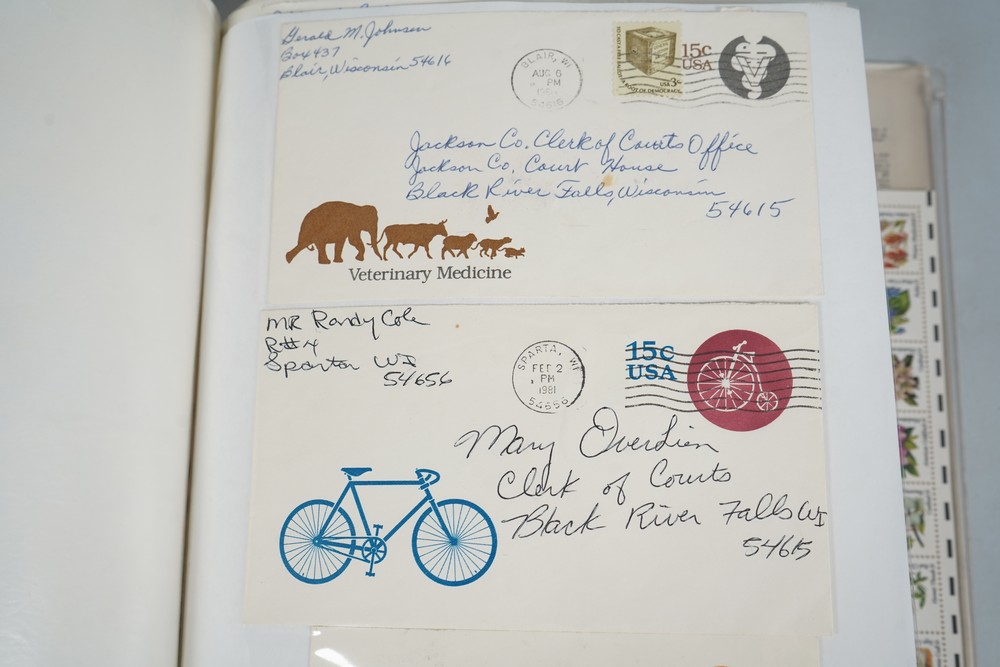 Gerald M. Johnson
Box 437
Blair, Wisconsin 54616
BLAIR, WI
AUG 6
PM
54616
15c
USA
USA 3c
ROOT OF DEMOCRACY
Jackson Co. Clerk of Courts Office
Jackson Co. Court House
Black River Falls, Wisconsin
54615
Veterinary Medicine
MR Randy Cole
R#4
Sparta WI
54656
SPARTA, WI
FEB 2
PM
1981
54656
15c
USA
Mary Overlien
Clerk of Courts
Black River Falls WI
54615